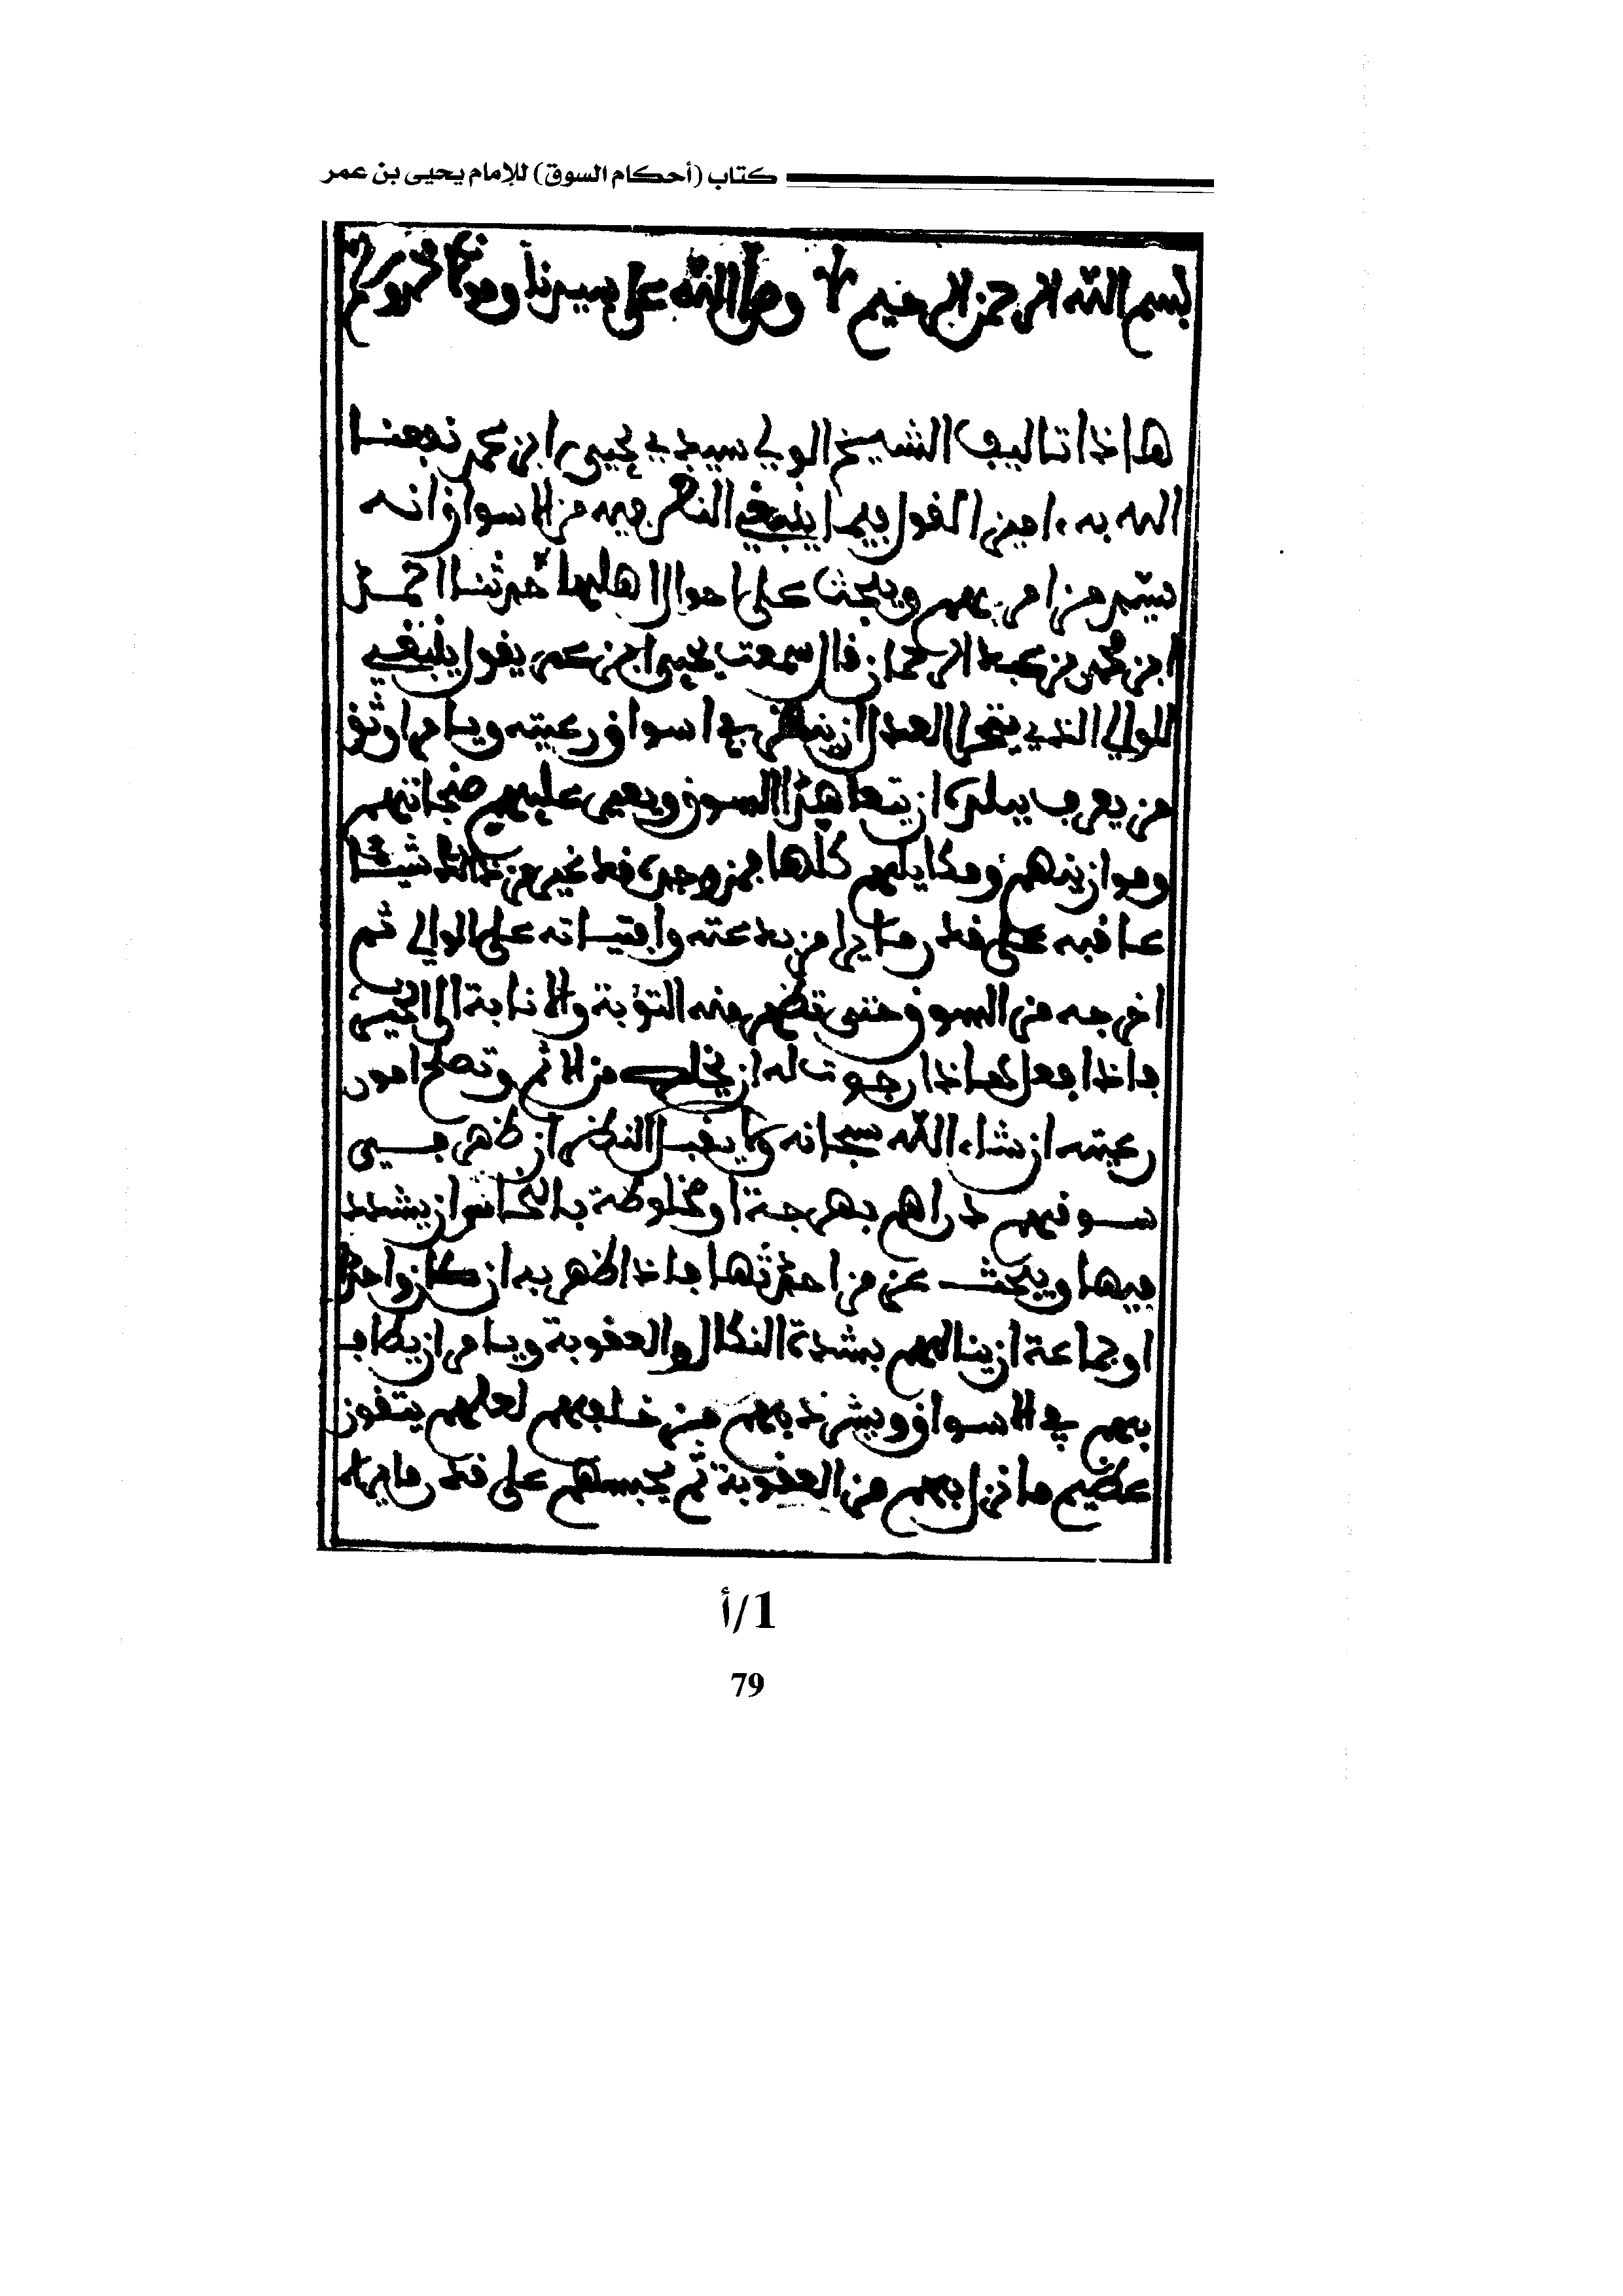 كتاب (أحكام السوق) للإمام يحيى بن عمر
بسم الله الرحمن الرحيم وصلى الله على سيدنا ومولانا محمد
هاذا تاليف الشيخ الولي سيدي يحيى ابن عمر نفعنا
الله به ءامين القول فيما ينبغي النظر فيه من الاسواق انه
من امر ويبحث على احوال اهلها حدثنا احمد
ابن محمد بن عبد الرحمان قال سمعت يحيى ابن عمر يقول ينبغي
للوالي الذي يتحرا العدل ان ينظر في اسواق رعيته ويامر اوثق
من يعرف ببلده ان يتعاهد السوق ويعير عليهم صنجاتهم
وموازينهم ومكاييلهم كلها فمن وجده قد غير من ذالك شيئا
عاقبه على قدر ما يرا من بدعته وافتياته على الوالي ثم
اخرجه من السوق حتى تظهر منه التوبة والانابة الى الخير
فاذا فعل هاذا رجوت له ان يخلص من الاثم وتصلح امور
رعيته ان شاء الله سبحانه ولا يغفل النظر ان ظهر في
سوقهم دراهم بهرجة او مخلوطة بالنحاس ان يشدد
فيها ويبحث عن من احدثها فاذا ظهر به ان كان واحدا
او جماعة ان ينالهم بشدة النكال والعقوبة ويامر ان يطاف
بهم في الاسواق ويشرد بهم من خلفهم لعلهم يتقون
عظيم ما نزل بهم من العقوبة ثم يحبسهم على قدر ما يرا
1/أ
79